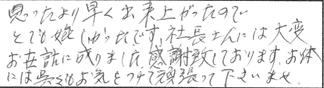 思ったより早く出来上がったので
とても嬉しかったです。社長さんには大変
お世話に成りました。感謝致しております。お体
には呉々もお気をつけて頑張って下さいませ。